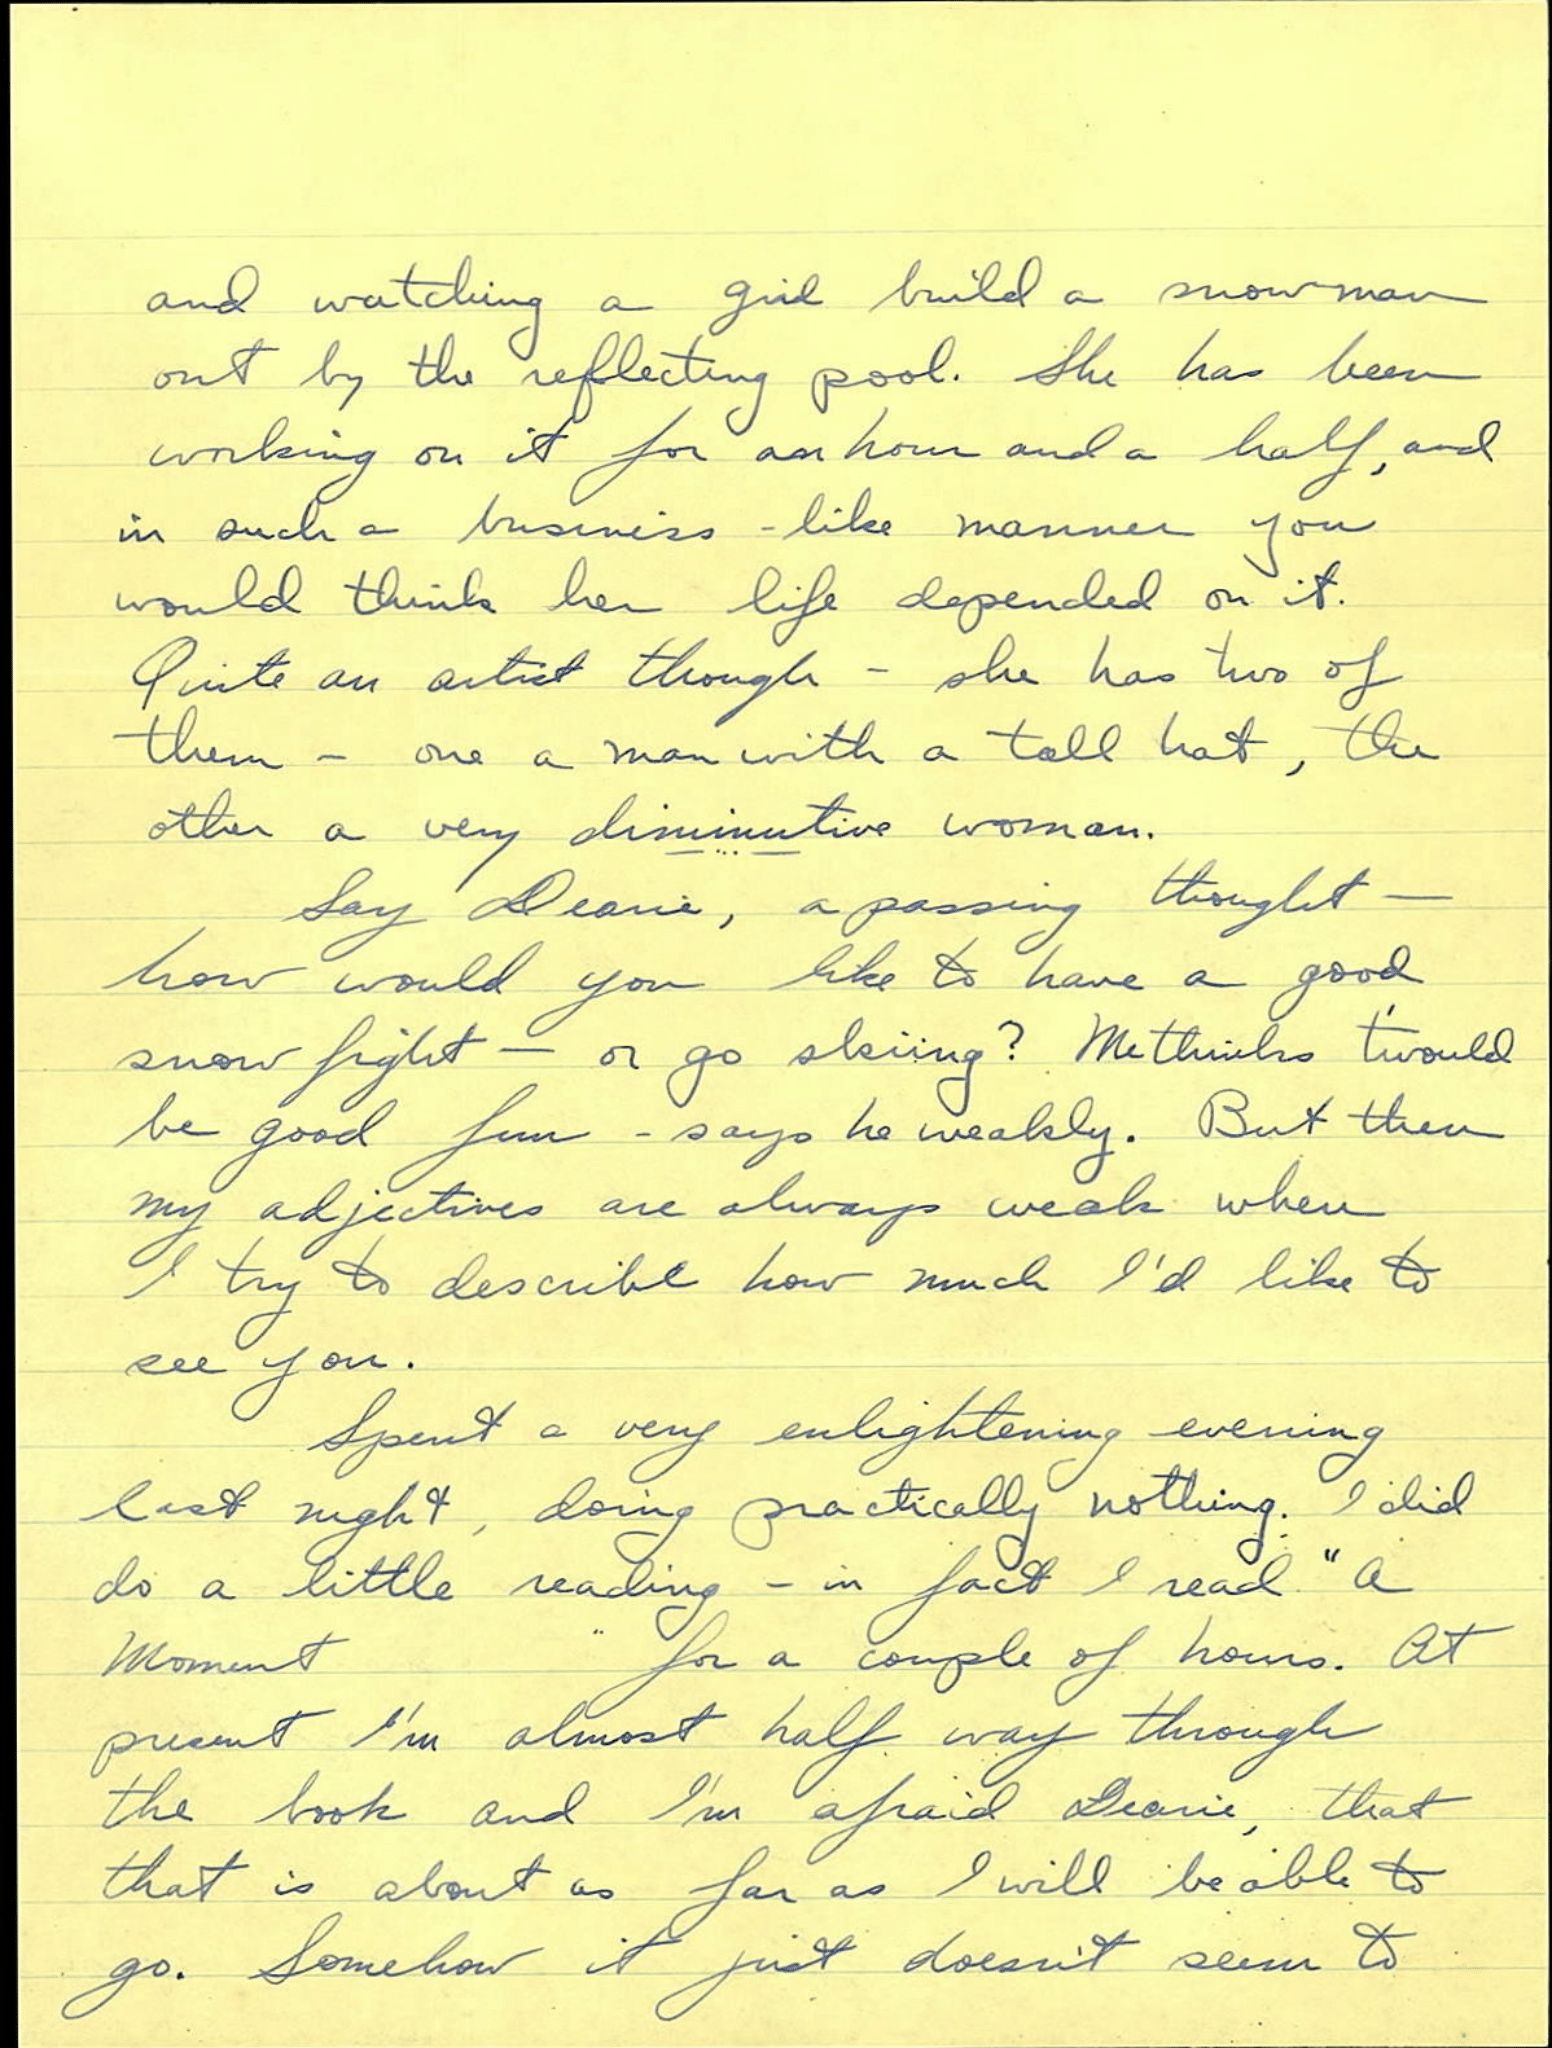 and watching a girl build a snowman
out by the reflecting pool. She has been
working on it for an hour and a half, and
in such a business-like manner you
would think her life depended on it.
Quite an artist though - she has two of
them - one a man with a tall hat, the
other a very diminutive woman.
Say Dearie, a passing thought —
how would you like to have a good
snow fight — or go skiing? Methinks t'would
be good fun - says he weakly. But then
my adjectives are always weak when
I try to describe how much I'd like to
see you.
Spent a very enlightening evening
last night, doing practically nothing. I did
do a little reading - in fact I read "A
Moment " for a couple of hours. At
present I'm almost half way through
the book and I'm afraid Dearie, that
that is about as far as I will be able to
go. Somehow it just doesn't seem to